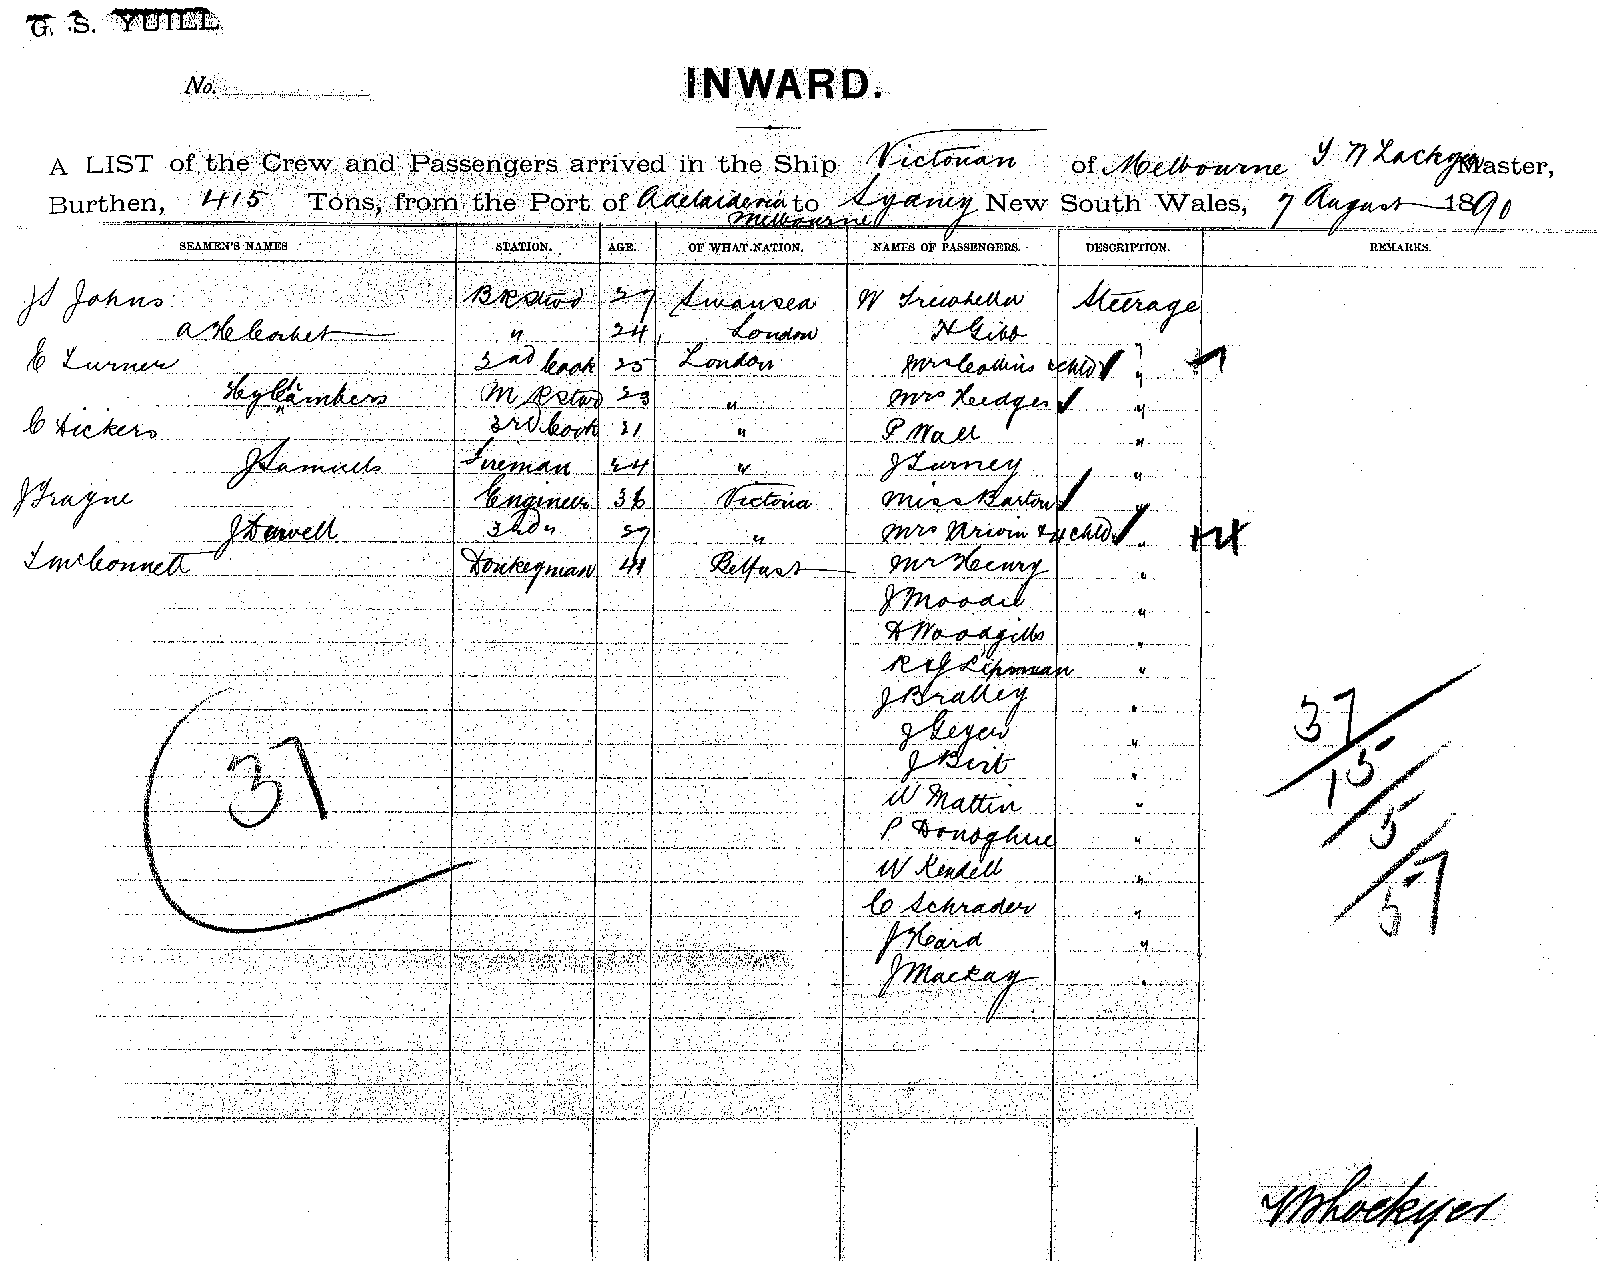 G. S. YUILL
No.
INWARD.
A LIST of the Crew and Passengers arrived in the Ship Victorian of Melbourne Master,
Burthen, 415 Tons, from the Port of Adelaide via Melbourne to Sydney New South Wales, 7 August 1890
SEAMEN'S NAMES STATION. AGE. OF WHAT NATION. NAMES OF PASSENGERS. DESCRIPTION. REMARKS.
J S Johns BR Stwd 27 Swansea W Trewhella Steerage
A H Corbet " 24 London H Gibb
C Turner 2nd Cook 25 London Mrs Collins & chld " 1
Hy Chambers M R Stwd 23 " Mrs Hedges "
C Vickers 3rd Cook 21 " P Wall "
J Samuels Fireman 24 " J Turney "
J Trayne Engineer 36 Victoria Miss Barton "
J Darvell 2nd " 27 " Mrs Urwin & 4 chld " +4
T McConnell Donkeyman 41 Belfast Mr Henry "
J Moodie "
H Woodgills "
R & J Lipman "
J Bralley "
J Geyer "
J Birt "
W Mattin "
P Donoghue "
W Kendell "
C Schrader "
J Hard "
J Mackay "
37
37
15
5
57
Lockyer